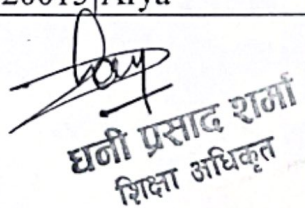 20015 Arya
धनी प्रसाद शर्मा
शिक्षा अधिकृत